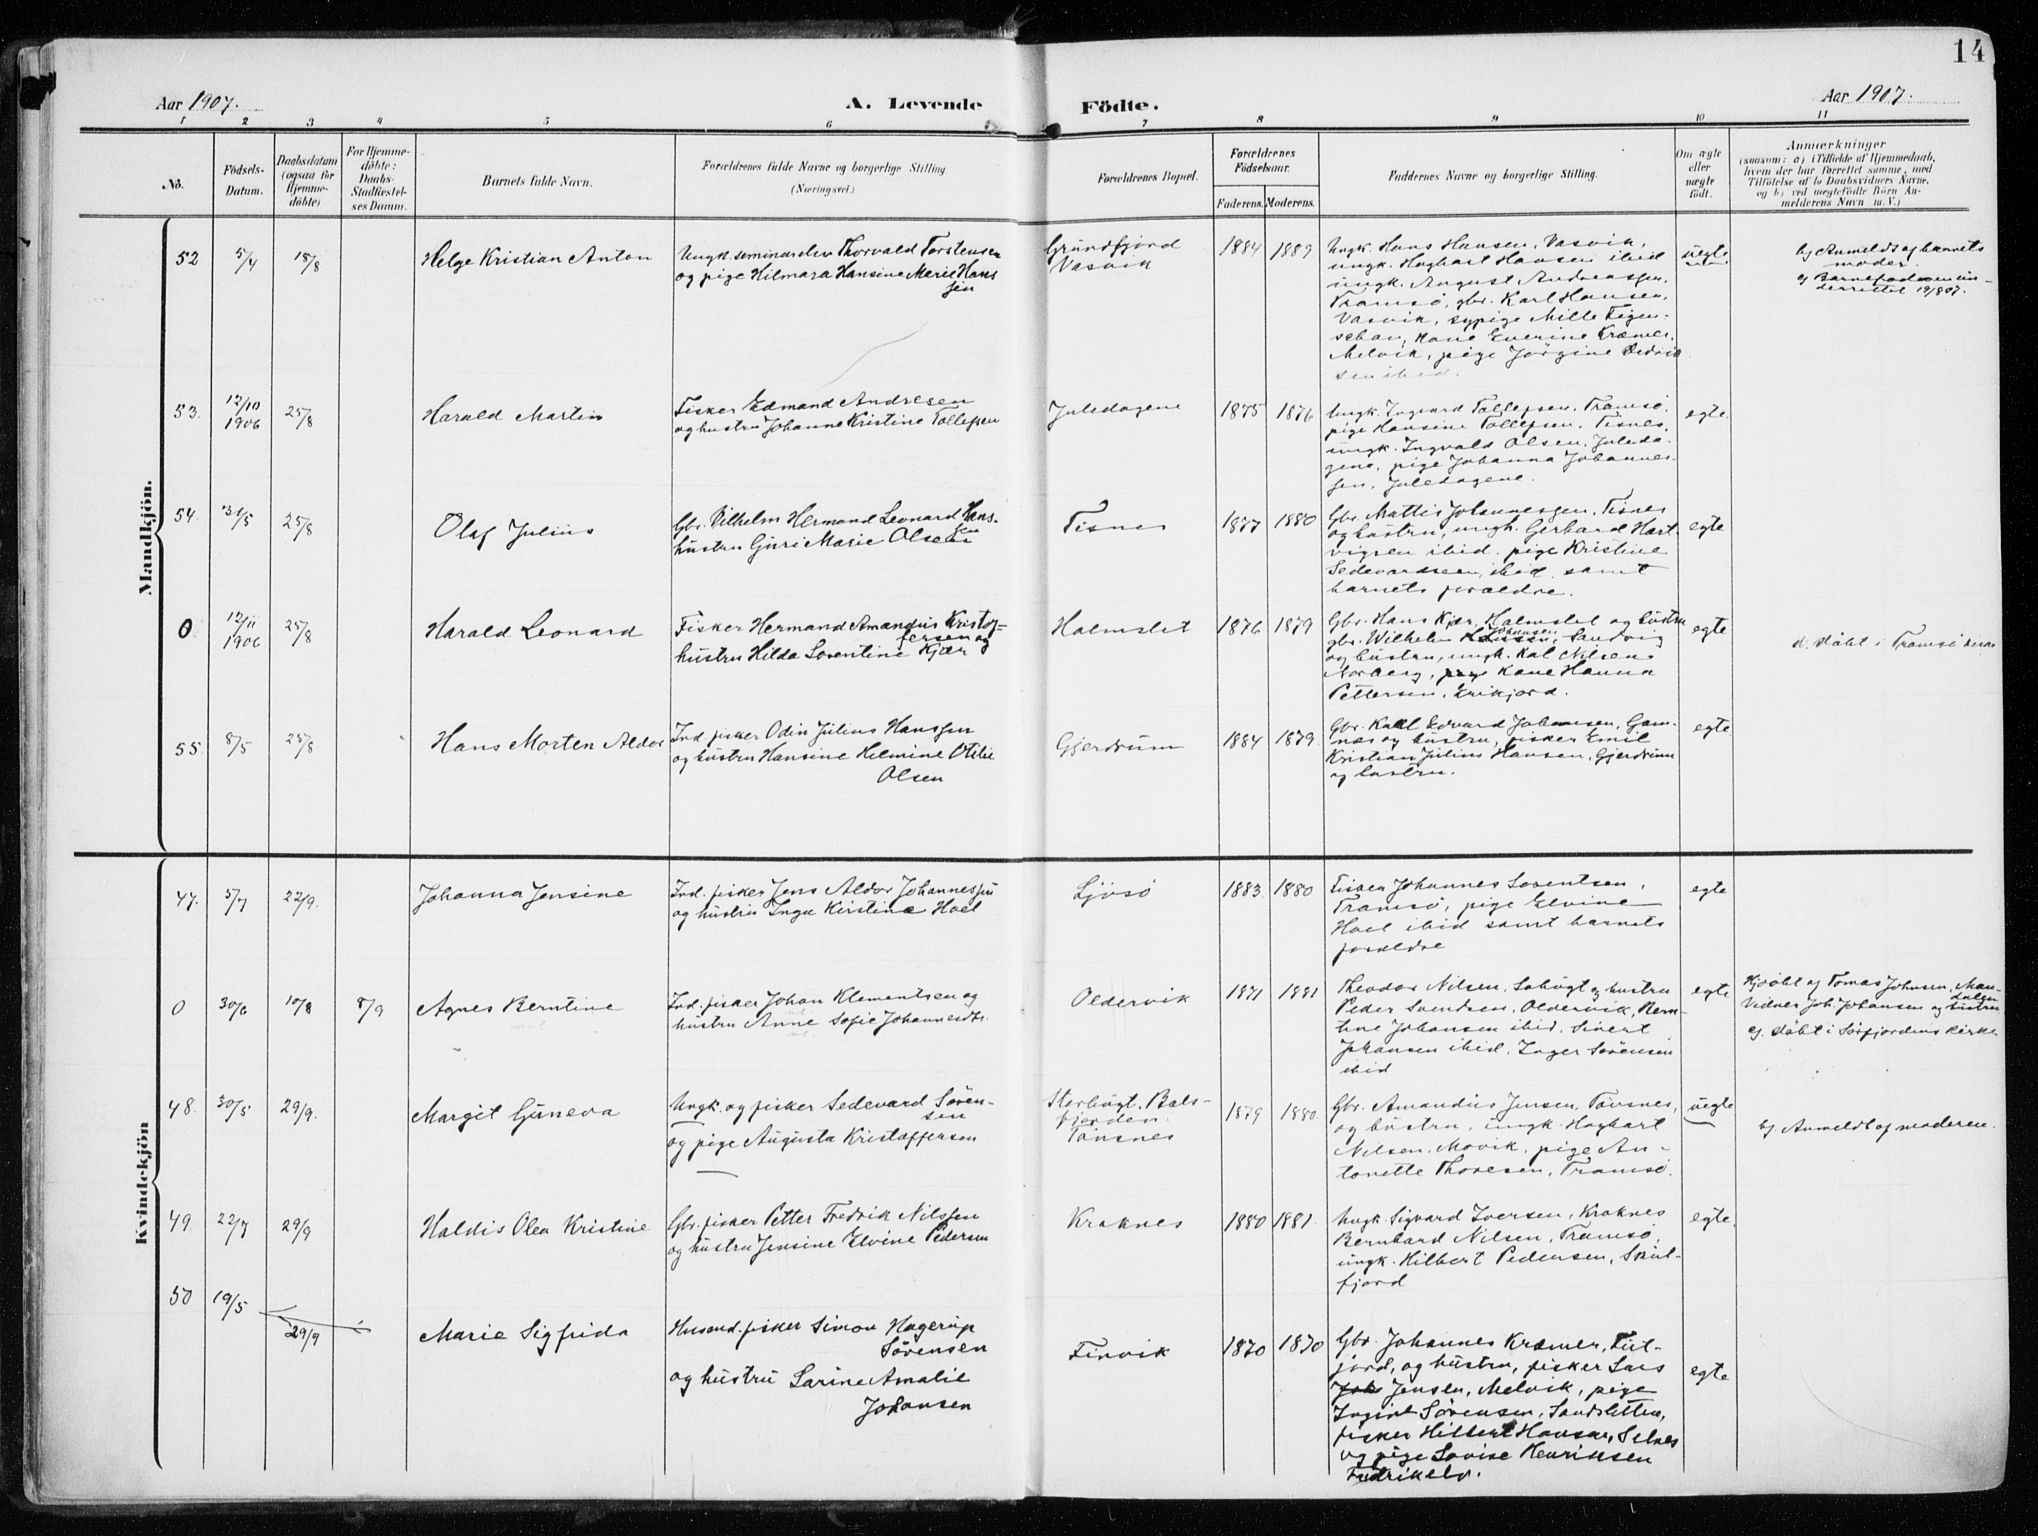 14
Aar 1907.
A. Levende
Födte.
Aar 1907.
1 2 3 4 5 6 7 8 9 10 11
No.
Födsels-
Datum.
Daabsdatum
(ogsaa for
Hjemme-
döbte)
For Hjemme-
döbte:
Daabs-
Stadfæstel-
ses Datum.
Barnets fulde Navn.
Forældrenes fulde Navne og borgerlige Stilling.
(Næringsvei.)
Forældrenes Bopæl.
Forældrenes
Födselsaar.
Faderens. Moderens.
Faddernes Navne og borgerlige Stilling.
Om ægte
eller
uægte
födt.
Anmærkninger
(saasom: a) i Tilfælde af Hjemmedaab,
hvem der har forrettet samme, med
Tilföielse af to Daabsvidners Navne,
og b) ved uægtefödte Börn An-
melderens Navn m. V.)
Mandkjön.
52 5/4 18/8
Helge Kristian Anton
Ungk. seminarelev Thorvald Torstensen
og pige Hilmara Hansine Marie Hans
sen
Grundfjord
Vasvik
1884 1889
Ungk. Hans Hansen, Vasvik,
ungk. Hagbart Hansen ibid
ungk. August Andreassen,
Tromsö, gbr. Karl Hansen,
Vasvik, sypige Mille Figen-
schau, kone Everine Kræmer,
Melvik, pige Jörgine Fredrik
sen ibid.
uegte
b) Anmeldt af barnets
moder.
c) Barnefaderen un-
derrettet 19/8 07.
53. 12/10
1906 25/8
Harald Martin
Fisker Edmand Andresen
og hustru Johanne Kristine Tollefsen
Juledagene
1875 1876
Ungk. Ingvard Tollefsen, Tromsö,
pige Hansine Tollefsen, Tisnes,
ungk. Ingvald Olsen, Juleda-
gene, pige Johanna Johannes-
sen, Juledagene.
egte.
54. 31/5 25/8
Olaf Julius
Gbr. Vilhelm Hermand Leonard Hans-
sen
hustru Guri Marie Olsen
Tisnes
1877 1880
Gbr. Mattis Johannesgen, Tisnes
og hustru, ungk. Gerhard Hart-
vigsen ibid. pige Kristine
Sedevardseen, ibid. samt
barnets forældre.
egte
0. 12/11
1906 25/8
Harald Leonard
Fisker Hermand Amandus Kristof-
fersen og
hustru Hilda Sorentine Kjær
Holmslet
1876 1879
Gbr. Hans Kjær, Holmslet og hustru
gbr. Wilhelm Johansen, Sandvig
og hustru, ungk. Kal Nilsen
Norberg, kone Hanna
Pettersen, Erikjord.
egte
d. döbt i Tromsö
55. 8/5 25/8
Hans Morten Aldor
Ind. fisker Odin Julius Hanssen
og hustru Hansine Helmine Otilie
Olsen
Gjerdrum
1884 1879.
Gbr. Karl Edvard Johansen, Gam-
nes og hustru, fisker Emil
Kristian Julius Hansen, Gjerdrum
og hustru.
egte.
Kvindekjön
47. 5/7 22/9.
Johanna Jensine
Ind. fisker Jens Aldor Johannessen
og hustru Inga Kirstine Hoel
Ljosö
1883. 1880
Fisker Johannes Sorentsen,
Tromsö, pige Elvine
Hoel ibid samt barnets
forældre
egte
0 30/6 10/8 8/9
Agnes Berntine
Ind. fisker Johan Klementsen og
hustru Anne Sofie Johannesdtr.
Oldervik
1871 1881
Theodor Nilsen, Sobugt og hustru
Peder Svendsen, Oldervik, Bern-
tine Johansen ibid, Sivert
Johansen ibid, Inger Sörensen
ibid
egte
Hjdöbt af Tomas Johnsen, Man-
dalen
Vidner Joh. Johansen og hustru
c). döbt i Sörfjordens kirke
48. 30/5 29/9.
Margit Guneva
Ungk. og fisker Sedevard Sören-
sen
og pige Augusta Kristoffersen
Storbugt, Bals-
fjorden.
Tonsnes
1879 1880.
Gbr. Amandus Jensen, Tonsnes,
og hustru, ungk. Hagbart
Nilsen, Movik, pige An-
tonette Thoresen, Tromsö.
uegte
b). Anmeldt af moderen.
49. 22/7 29/9
Haldis Olea Kristine
Gbr. fisker Petter Fredrik Nilssen
og hustru Jensine Elvine Pedersen
Kroknes
1880 1881.
Ungk. Sigvard Iversen, Kroknes
Bernhard Nilsen, Tromsö,
ungk. Hilbert Pedersen, Skul-
fjord
egte.
50 19/5
29/9
Marie Sigfrida
Husmd. fisker Simon Hagerup
Sörensen
og hustru Larine Amalie
Johansen
Finvik
1870 1870
Gbr. Johannes Kræmer, Tut-
jord, og hustru, fisker Lars
Jensen, Melvik, pige
Ingine Sörensen, Sandsletten,
fisker Hilbert Hansen, Selnes
og pige Lovise Henriksen
egte